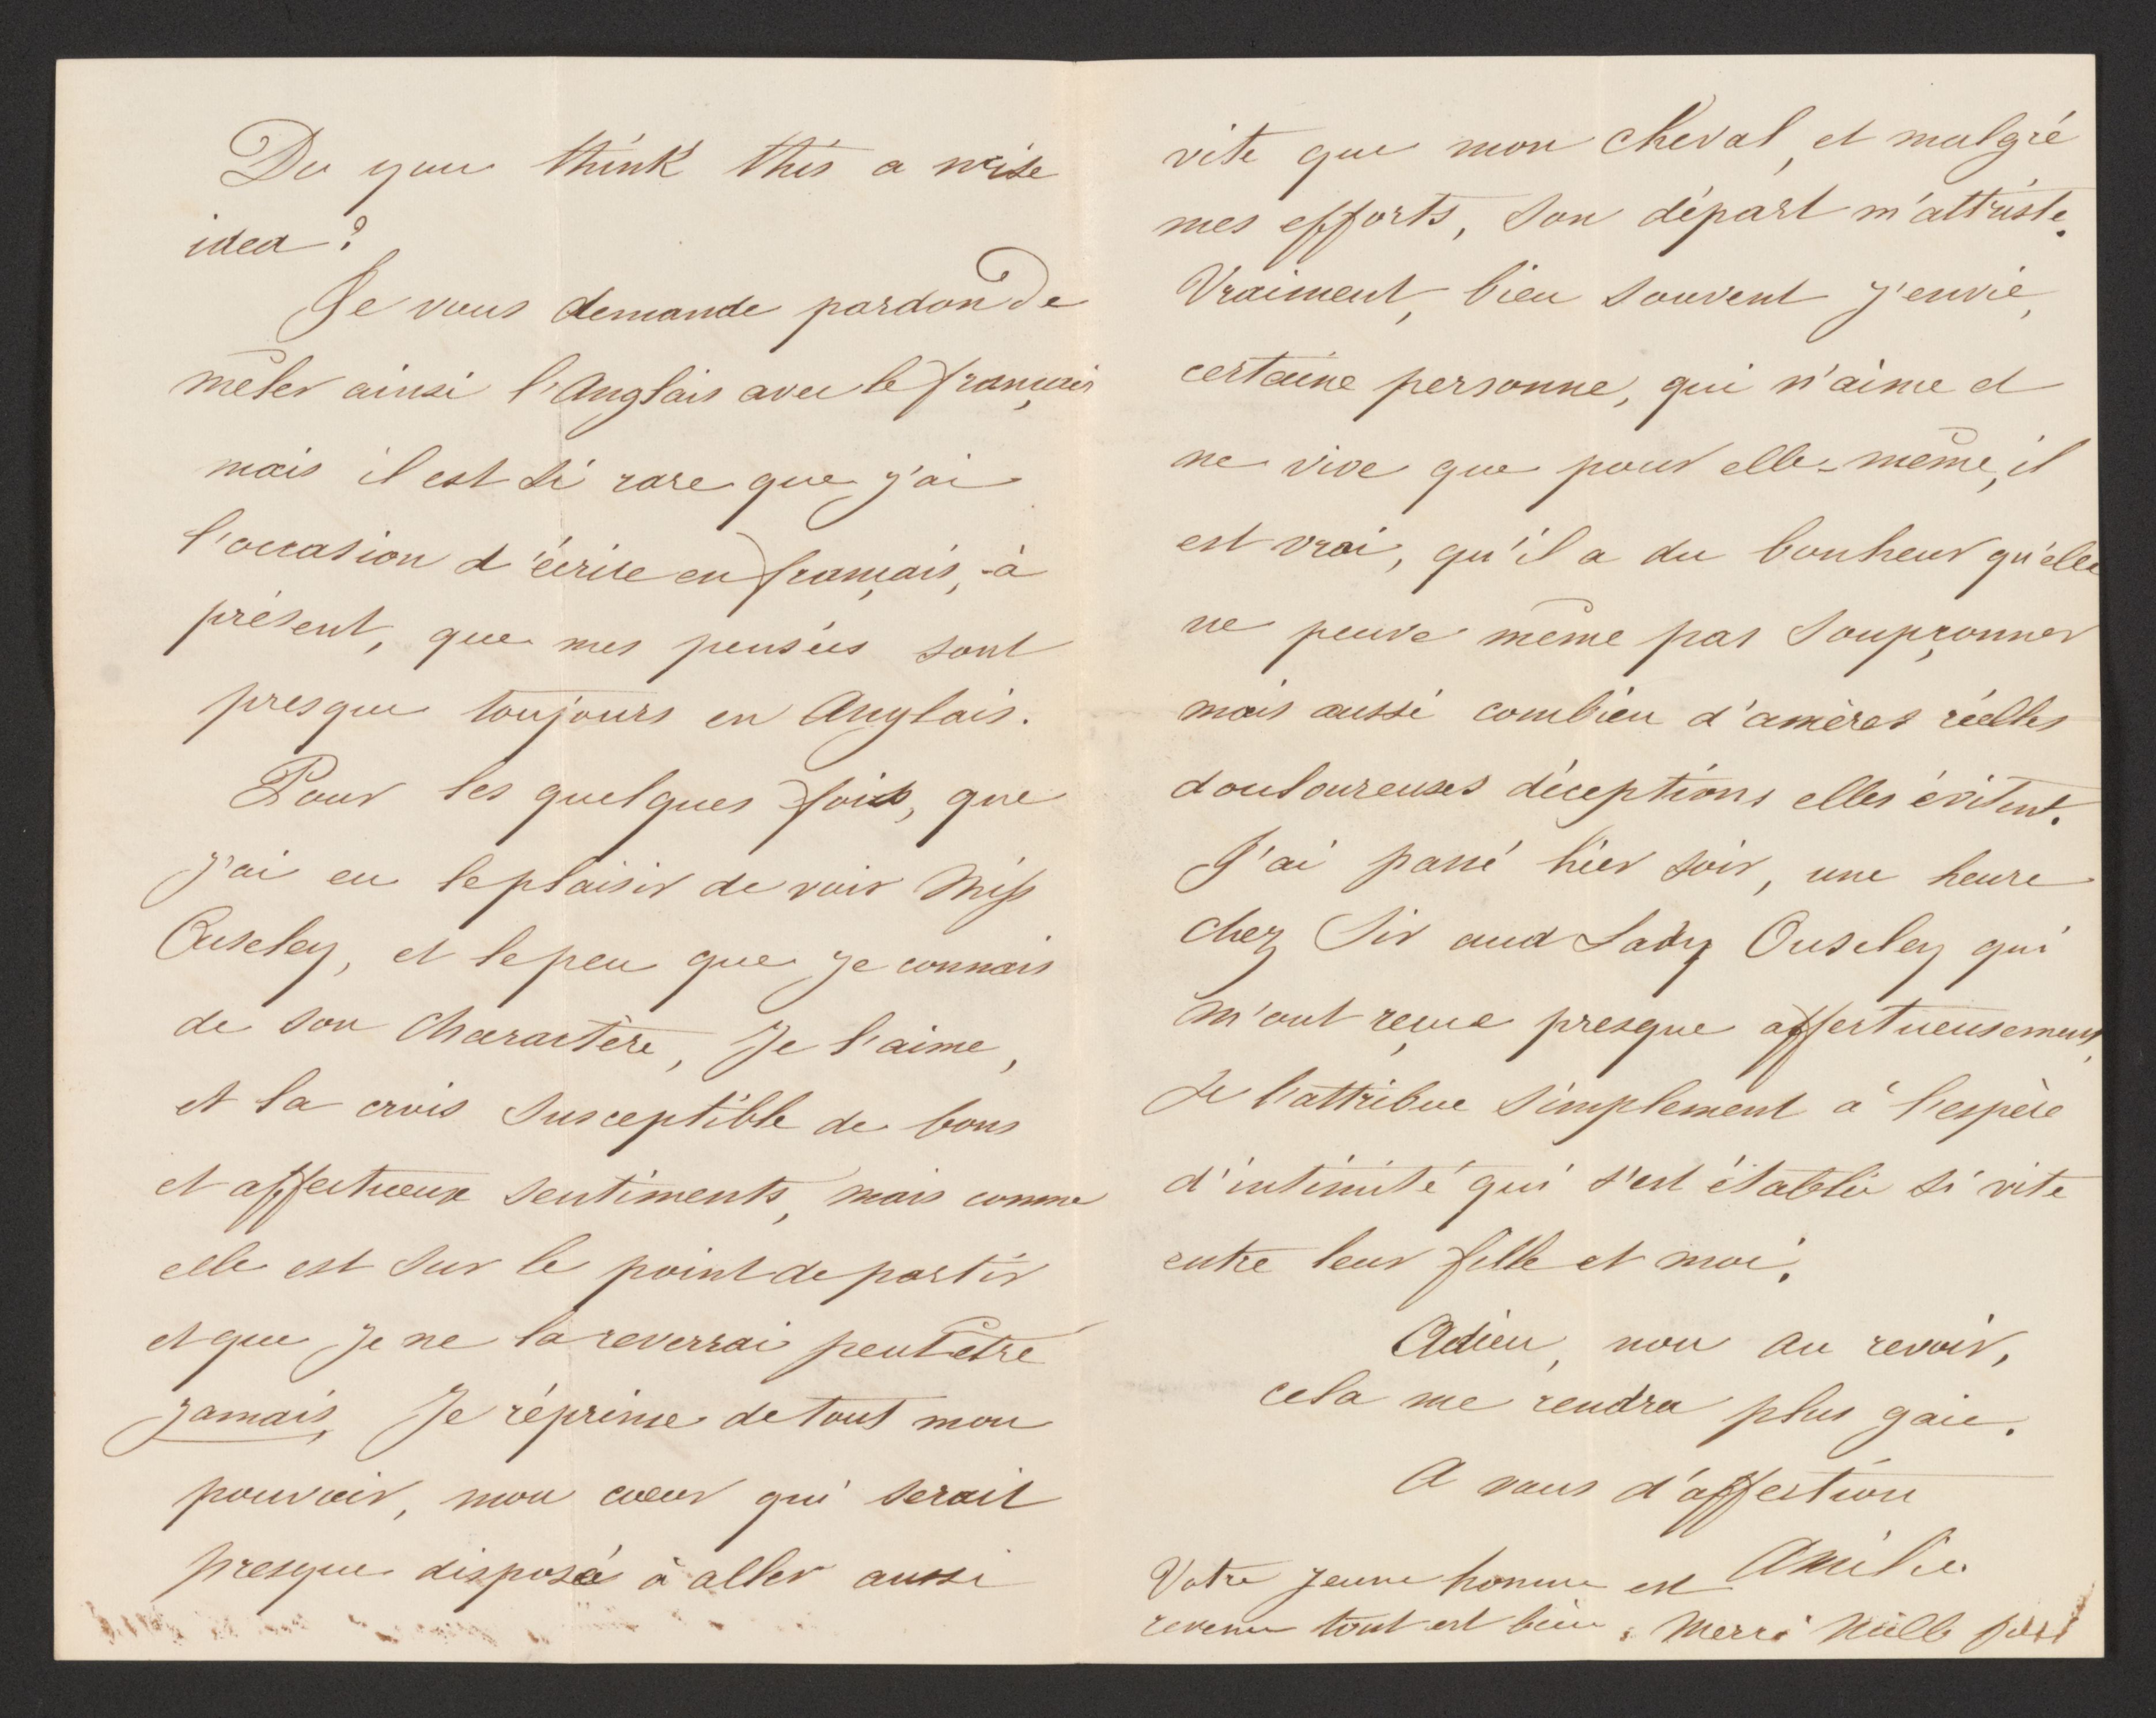 Do you think this a wise
idea?
Je vous demande pardon de
mêler ainsi l'Anglais avec le français
mais il est si rare que j'ai
l'occasion d'écrire en français, à
présent, que mes pensées sont
presque toujours en Anglais.
Pour les quelques fois, que
j'ai eu le plaisir de voir Miss
Ouseley, et le peu que je connais
de son charactère, Je l'aime,
et la crois susceptible de bons
et affectueux sentiments, mais comme
elle est sur le point de partir
et que je ne la reverrai peut être
jamais, Je réprime de tout mon
pouvoir, mon cœur qui serait
presque disposé à aller aussi
vite que mon cheval, et malgré
mes efforts, son départ m'attriste.
Vraiment, bien souvent j'envie,
certaine personne, qui n'aime et
ne vive que pour elle-même, il
est vrai, qu'il a du bonheur qu'elle
ne peuve même pas soupçonner
mais aussi combien d'amères réelles
douloureuses déceptions elles évitent.
J'ai passé hier soir, une heure
chez Sir and Lady Ouseley qui
m'ont reçue presque affectueusement,
Je l'attribue simplement à l'espèce
d'intimité qui s'est établie si vite
entre leur fille et moi.
Adieu, non au revoir,
cela me rendra plus gaie.
A vous d'affection
Amélie
Votre jeune homme est
revenu tout est bien. Merci Mille fois